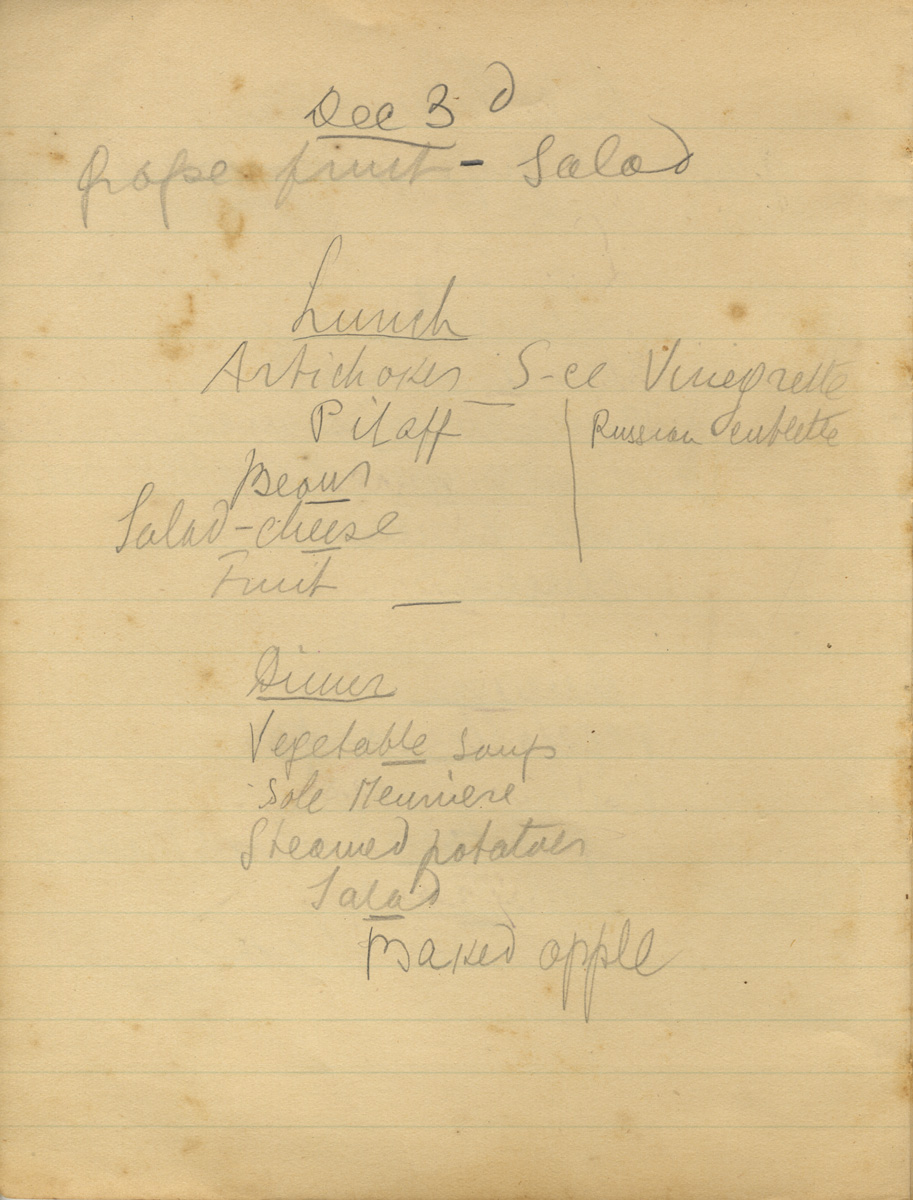 Dec 3d
Grape fruit - Salad
Lunch
Artichokes - S-ce Vinegrette
Pilaff | Russian cutlette
Beans
Salad-cheese
Fruit
Dinner
Vegetable soup
Sole Meuniere
Steamed potatoes
Salad
Baked apple